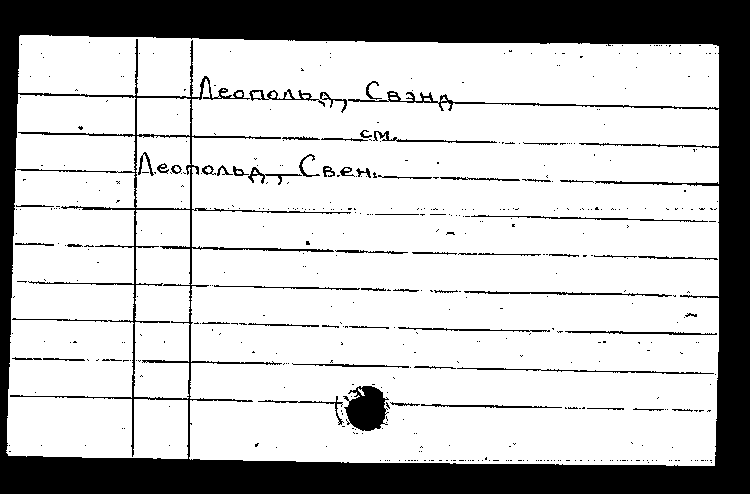 Леопольд, Свэнд
см.
Леопольд, Свен.